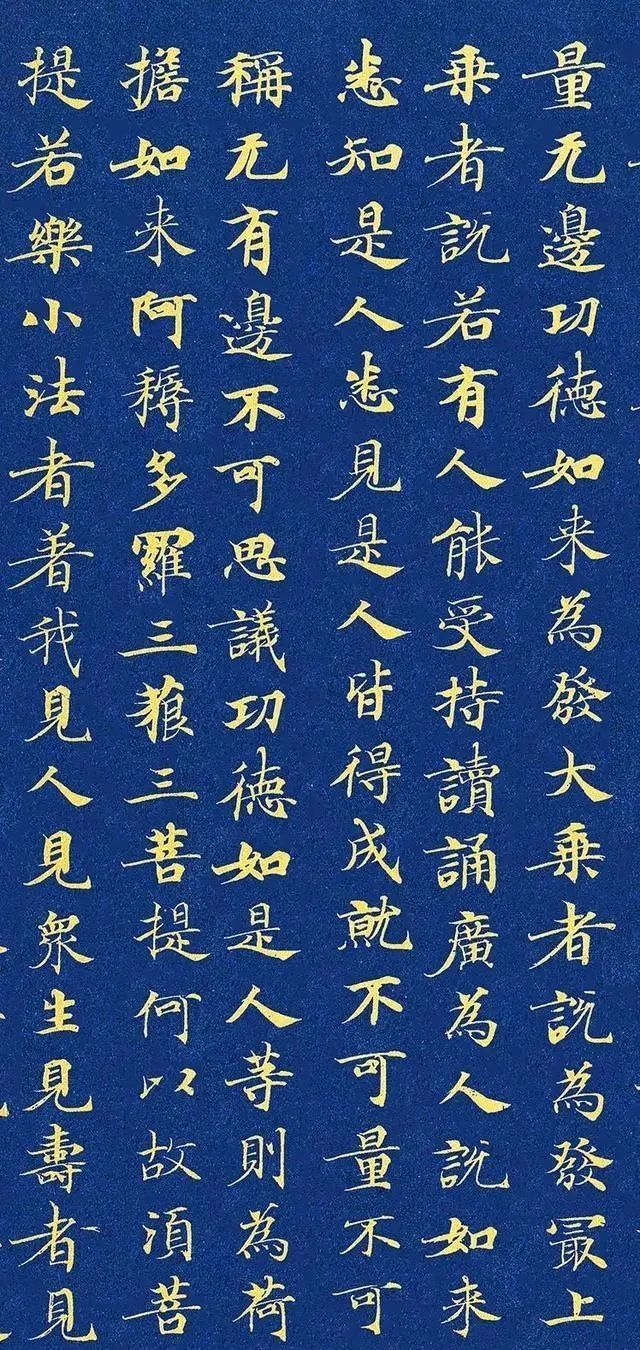 量无邊功德如来為發大乗者説為發冣上
乗者説若有人能受持讀誦廣為人説如来
悉知是人悉見是人皆得成就不可量不可
稱无有邊不可思議功德如是人等則為荷
擔如来阿耨多羅三藐三菩提何以故湏菩
提若樂小法者著我見人見衆生見壽者見